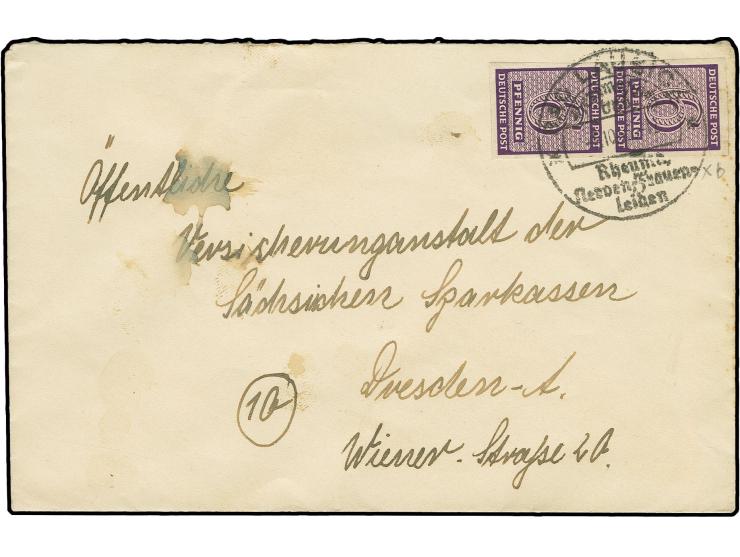 DEUTSCHE POST
PFENNIG
6
DEUTSCHE POST
DEUTSCHE POST
PFENNIG
6
DEUTSCHE POST
10
Rheuma,
Nerven, Frauen=
leiden
xb
Öffentliche
Versicherunganstalt der
Sächsichen Sparkassen
10
Dresden-A.
Wiener-Straße 20.